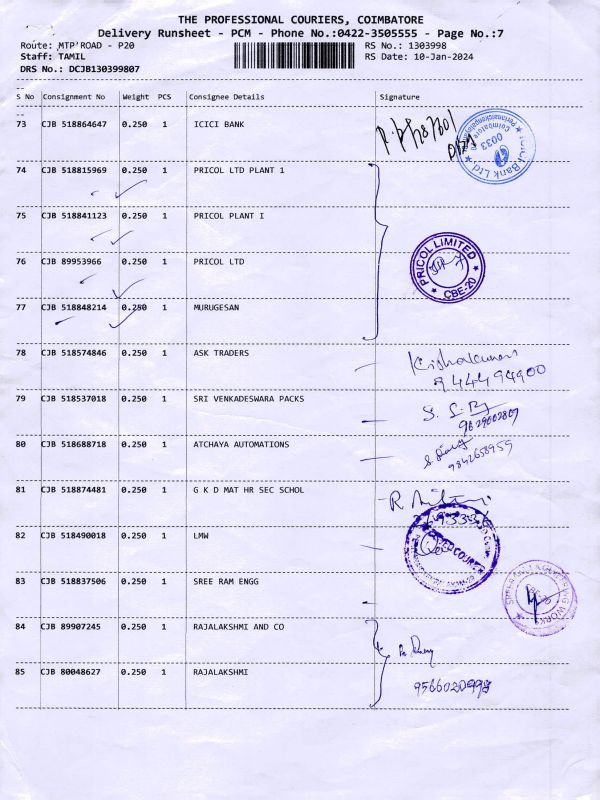 THE PROFESSIONAL COURIERS, COIMBATORE
Delivery Runsheet - PCM - Phone No.:0422-3505555 - Page No.:7
Route: MTP ROAD - P20 RS No.: 1303998
Staff: TAMIL RS Date: 10-Jan-2024
DRS No.: DCJB130399807
S No Consignment No Weight PCS Consignee Details Signature
73 CJB 518864647 0.250 1 ICICI BANK
ICICI Bank Ltd
0033
Coimbatore
74 CJB 518815969 0.250 1 PRICOL LTD PLANT 1
75 CJB 518841123 0.250 1 PRICOL PLANT I
76 CJB 89953966 0.250 1 PRICOL LTD
PRICOL LIMITED
CBE-20
77 CJB 518848214 0.250 1 MURUGESAN
78 CJB 518574846 0.250 1 ASK TRADERS
9444494900
79 CJB 518537018 0.250 1 SRI VENKADESWARA PACKS
80 CJB 518688718 0.250 1 ATCHAYA AUTOMATIONS
9842658959
81 CJB 518874481 0.250 1 G K D MAT HR SEC SCHOL
82 CJB 518490018 0.250 1 LMW
83 CJB 518837506 0.250 1 SREE RAM ENGG
84 CJB 89907245 0.250 1 RAJALAKSHMI AND CO
85 CJB 80048627 0.250 1 RAJALAKSHMI